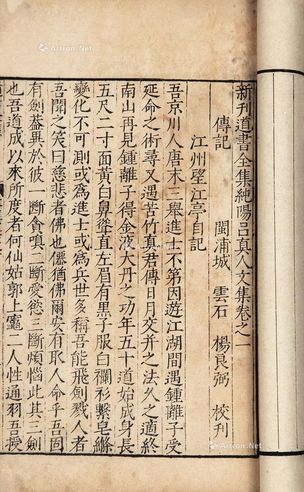 新刊道書全集純陽呂真人文集卷之一
傳記 閩浦城 雲石 楊良弼 校刊
江州望江亭自記
吾京川人唐末三舉進士不第因遊江湖間遇鍾離子受
延命之術尋又遇苦竹真君傳日月交并之法久之適終
南山再見鍾離子得金液大丹之功年五十道始成身長
五尺二寸面黃白鼻聳直左眉有黑子服白襴衫繫皂絛
變化不可測或為進士或為兵世多稱吾能飛劍戮人者
吾聞之笑曰慈悲者佛也僊猶佛爾安有取人命乎吾固
有劍蓋異於彼一斷貪嗔二斷愛慾三斷煩惱此其三劍
也吾道成以來所度者何仙姑郭上竈二人性通羽吾授
Artron.Net